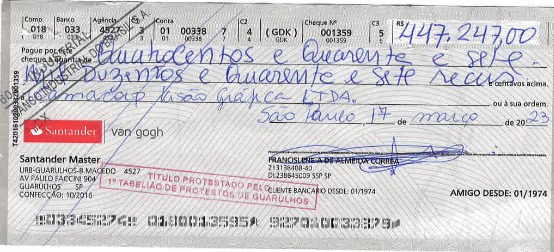 Comp. Banco Agência C1 Conta C2 Série Cheque Nº C3 R$
018 033 4527 3 01 00338 7 4 (GDK) 001359 5 447.247,00
018 033 4527 01 00338 4 GDK 001359
Pague por este
cheque a quantia de Quatrocentos e Quarenta e sete
Mil Duzentos e Quarenta e sete reais e centavos acima.
Visão Gráfica LTDA. ou à sua ordem.
São Paulo 17 de março de 2023
Santander van gogh
Santander Master
URB-GUARULHOS-B.MACEDO 4527
AV PAULO FACCINI 904
GUARULHOS SP
CONFECÇÃO: 10/2016
FRANCISLENE A DE ALMEIDA CORREA
213138408-40
SSP SP
CLIENTE BANCÁRIO DESDE: 01/1974
AMIGO DESDE: 01/1974
TÍTULO PROTESTADO PELO
1º TABELIÃO DE PROTESTOS DE GUARULHOS